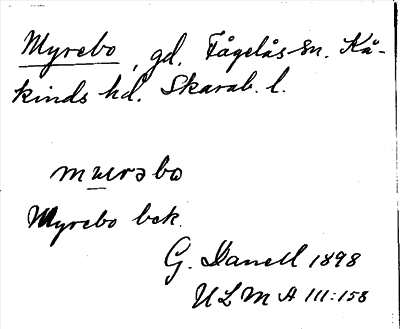 Myrebo, gd. Fågelås sn. Kå-
kinds hd. Skarab. l.
Myrebo bek.
G. Danell 1898
ULMA 111:158